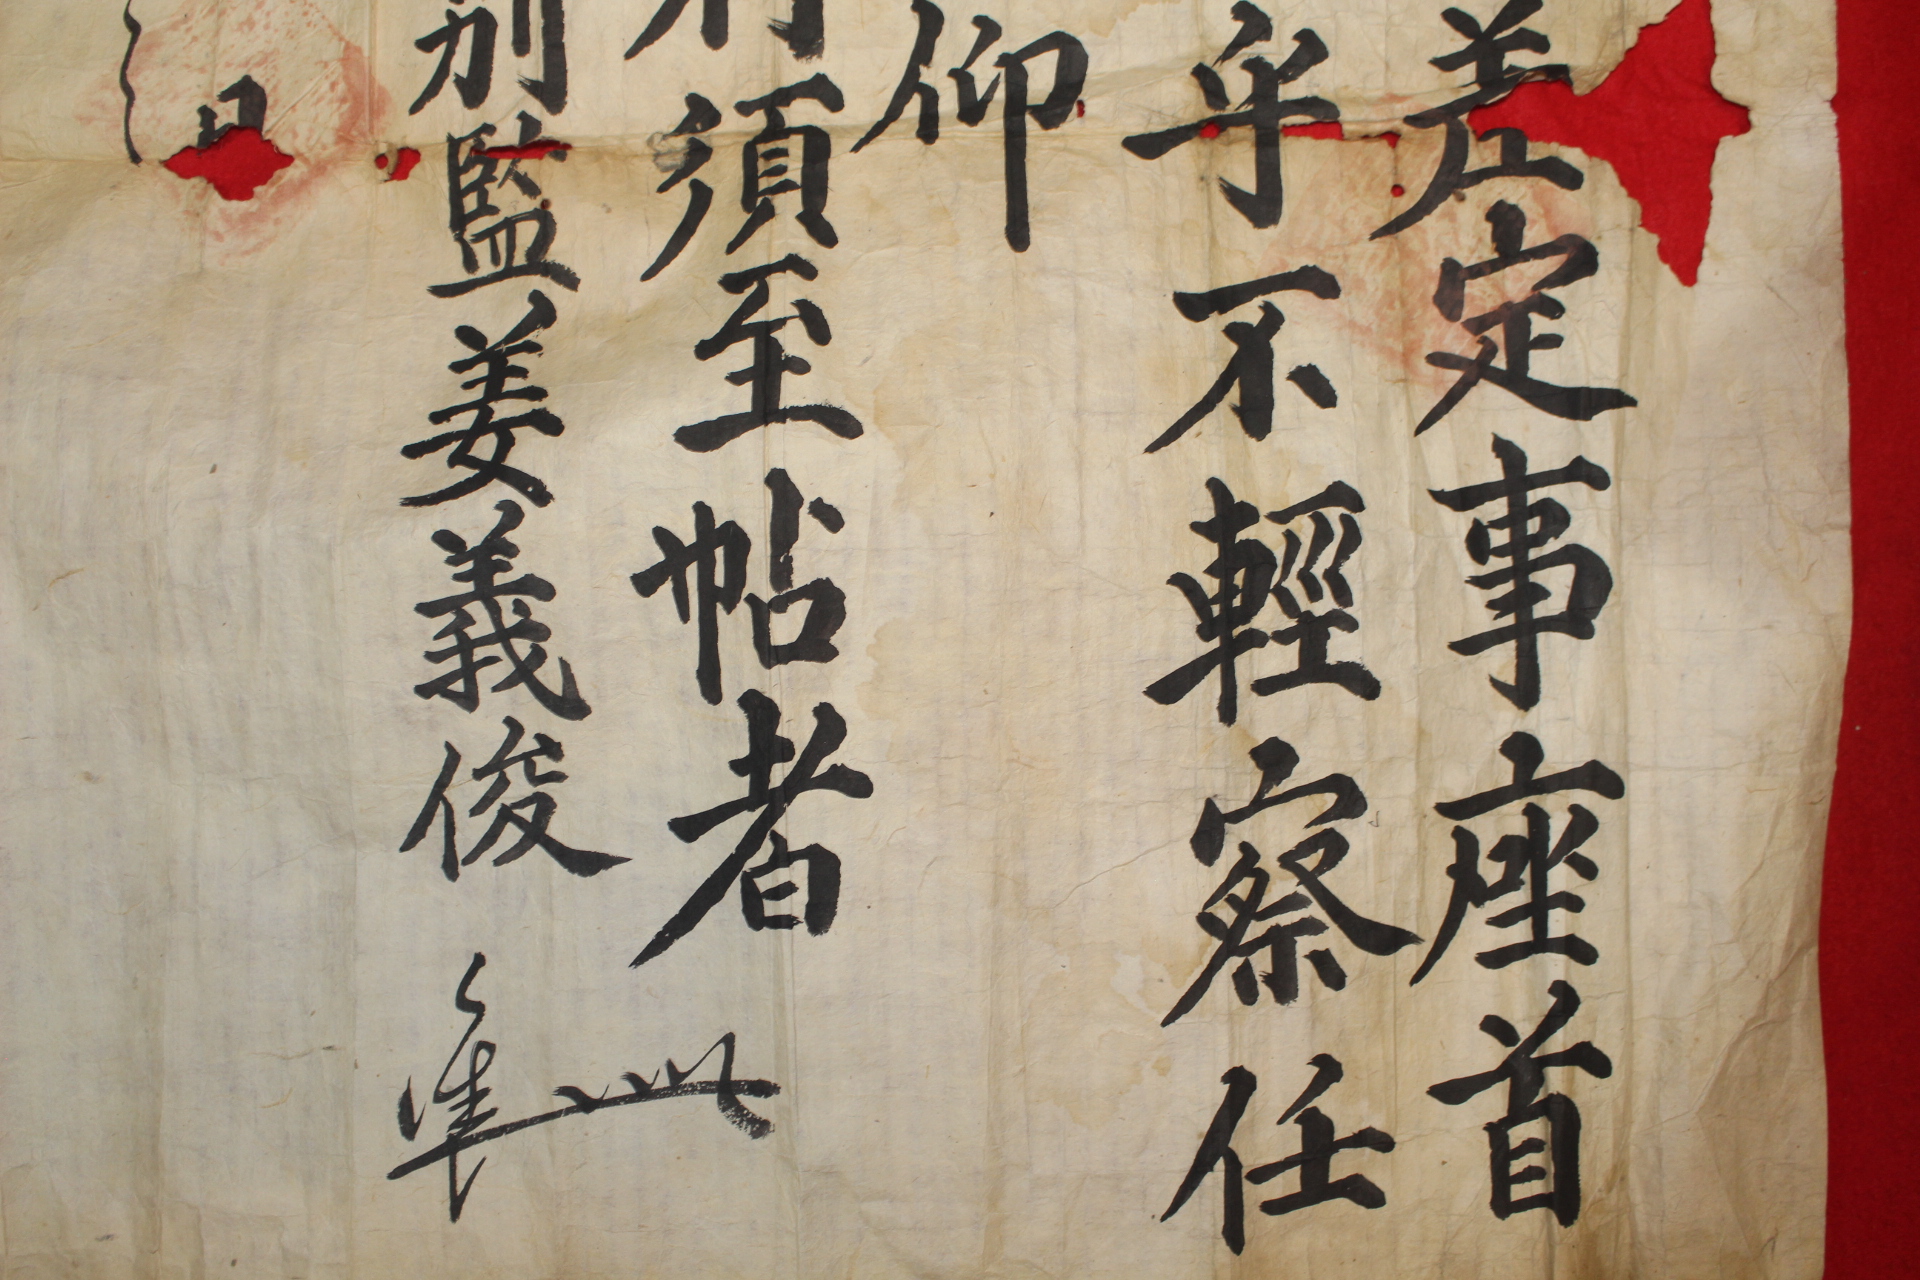 差定事座首
乎不輕察任
仰
須至帖者
別監姜義俊
日